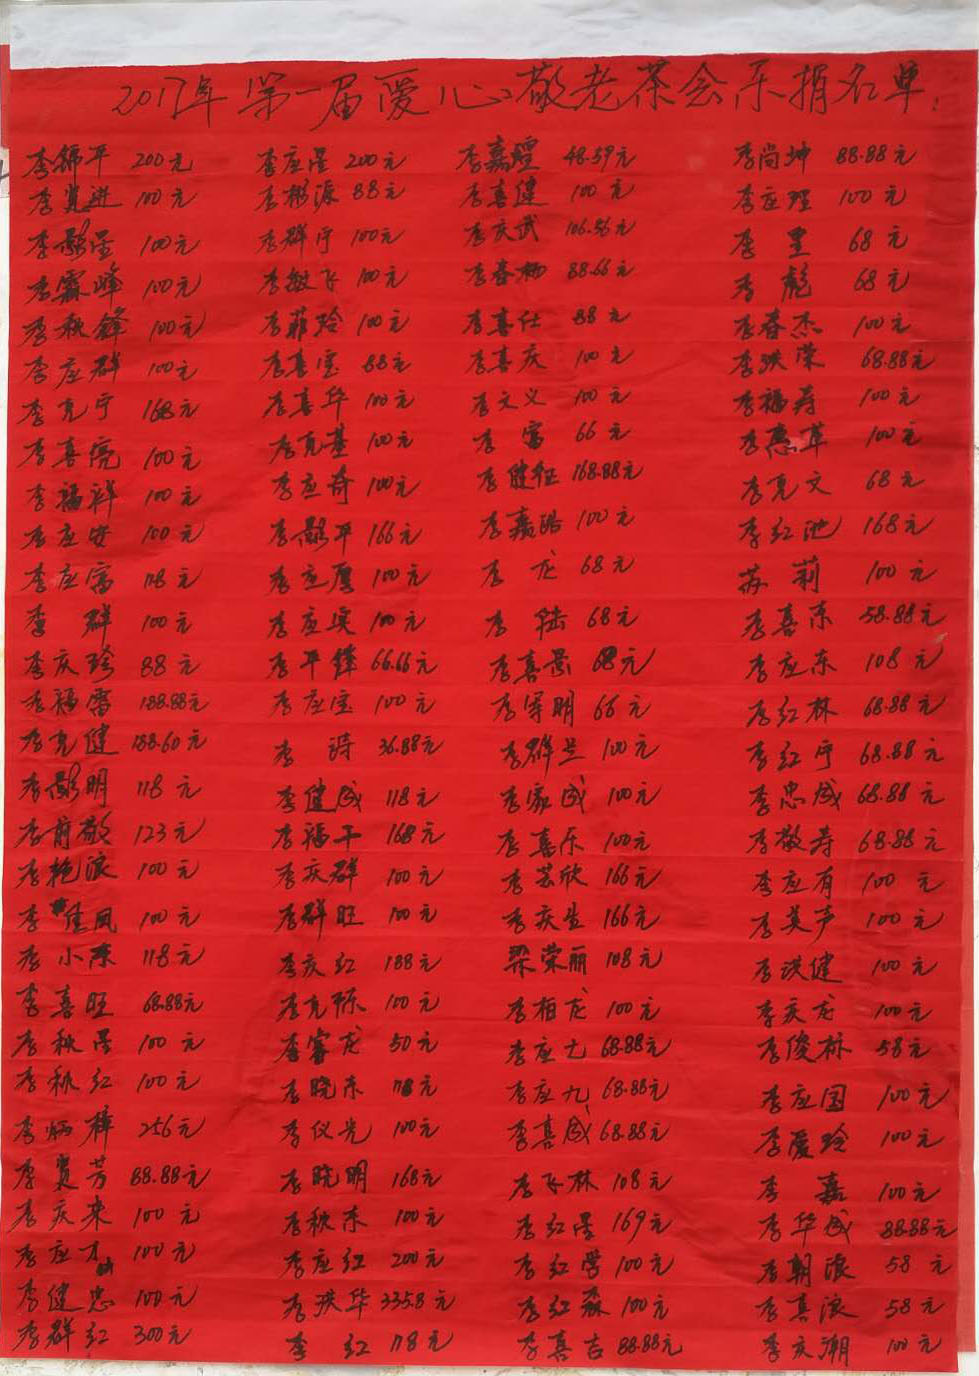 2017年第一届爱心敬老茶会乐捐名单:
李锦平 200元 李应星 200元 李嘉煌 48.59元 李尚坤 88.88元
李宽进 100元 李彬源 88元 李喜健 100元 李应理 100元
李影星 100元 李群宁 100元 李庆武 106.56元 李星 68元
李霖峰 100元 李敏飞 100元 李春杨 88.66元 李彪 68元
李秋锋 100元 李菲玲 100元 李喜仕 88元 李春杰 100元
李应群 100元 李喜宝 88元 李喜庆 100元 李洪荣 68.88元
李亮宁 168元 李喜华 100元 李文义 100元 李福寿 100元
李喜院 100元 李亮基 100元 李富 66元 李惠革 100元
李福祥 100元 李应奇 100元 李健征 168.88元 李亮文 68元
李应安 100元 李影平 166元 李嘉皓 100元 李红池 168元
李应富 118元 李应厚 100元 李龙 68元 苏莉 100元
李群 100元 李应宾 100元 李陆 68元 李喜东 58.88元
李庆玲 88元 李平锋 66.66元 李喜景 68元 李应东 108元
李福富 188.88元 李应宝 100元 李军明 66元 李红林 68.88元
李亮健 188.60元 李诗 36.88元 李群兰 100元 李红宁 68.88元
李影明 118元 李健成 118元 李家成 100元 李忠成 68.88元
李前敬 123元 李福干 168元 李喜乐 100元 李敬寿 68.88元
李艳浪 100元 李庆群 100元 李芸欣 166元 李应有 100元
李佳凤 100元 李群旺 100元 李庆生 166元 李美芦 100元
李小东 118元 李庆红 188元 梁荣丽 108元 李洪健 100元
李喜旺 68.88元 李亮标 100元 李柏龙 100元 李庆龙 100元
李秋星 100元 李睿龙 50元 李应七 68.88元 李俊林 58元
李秋红 100元 李晓东 118元 李应九 68.88元 李应国 100元
李炳祥 256元 李仪光 100元 李喜成 68.88元 李爱玲 100元
李宽芳 88.88元 李晓明 168元 李飞林 108元 李嘉 100元
李庆来 100元 李秋东 100元 李红星 169元 李华成 88.88元
李应才 100元 李应红 200元 李红学 100元 李朝浪 58元
李健忠 100元 李洪华 335.8元 李红森 100元 李真浪 58元
李群红 300元 李红 118元 李喜吉 88.88元 李庆潮 100元